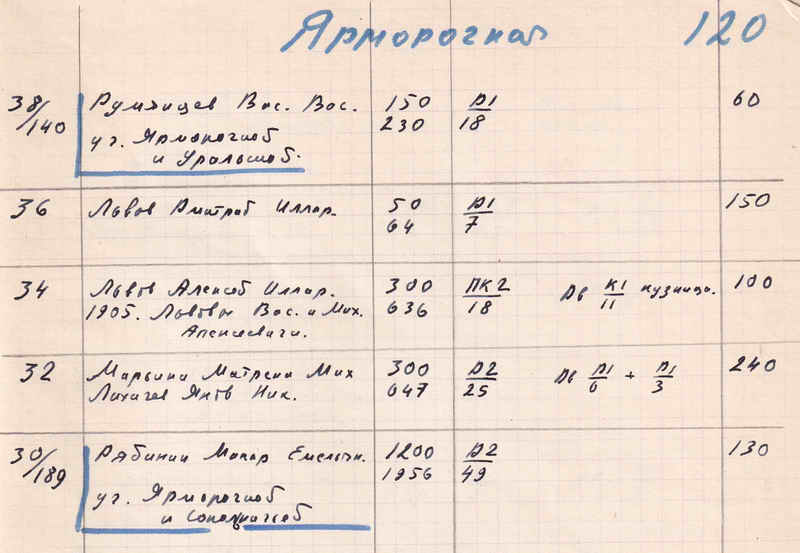 Ярморочная 120
38/140 Румянцев Вас. Вас. 150 Д1 60
230 18
уг. Ярморочной
и Уральской.
36 Львов Дмитрий Иллар. 50 Д1 150
64 7
34 Львов Алексей Иллар. 300 ПК2 Дв К1/11 кузница. 100
1905. Львовы Вас. и Мих. 636 18
Алексеевичи.
32 Марьина Матрена Мих 300 Д2 Дв Д1/6 + Д1/3 240
Лихачев Яков Ник. 647 25
30/189 Рябинин Макар Емельян. 1200 Д2 130
1956 49
уг. Ярморочной
и